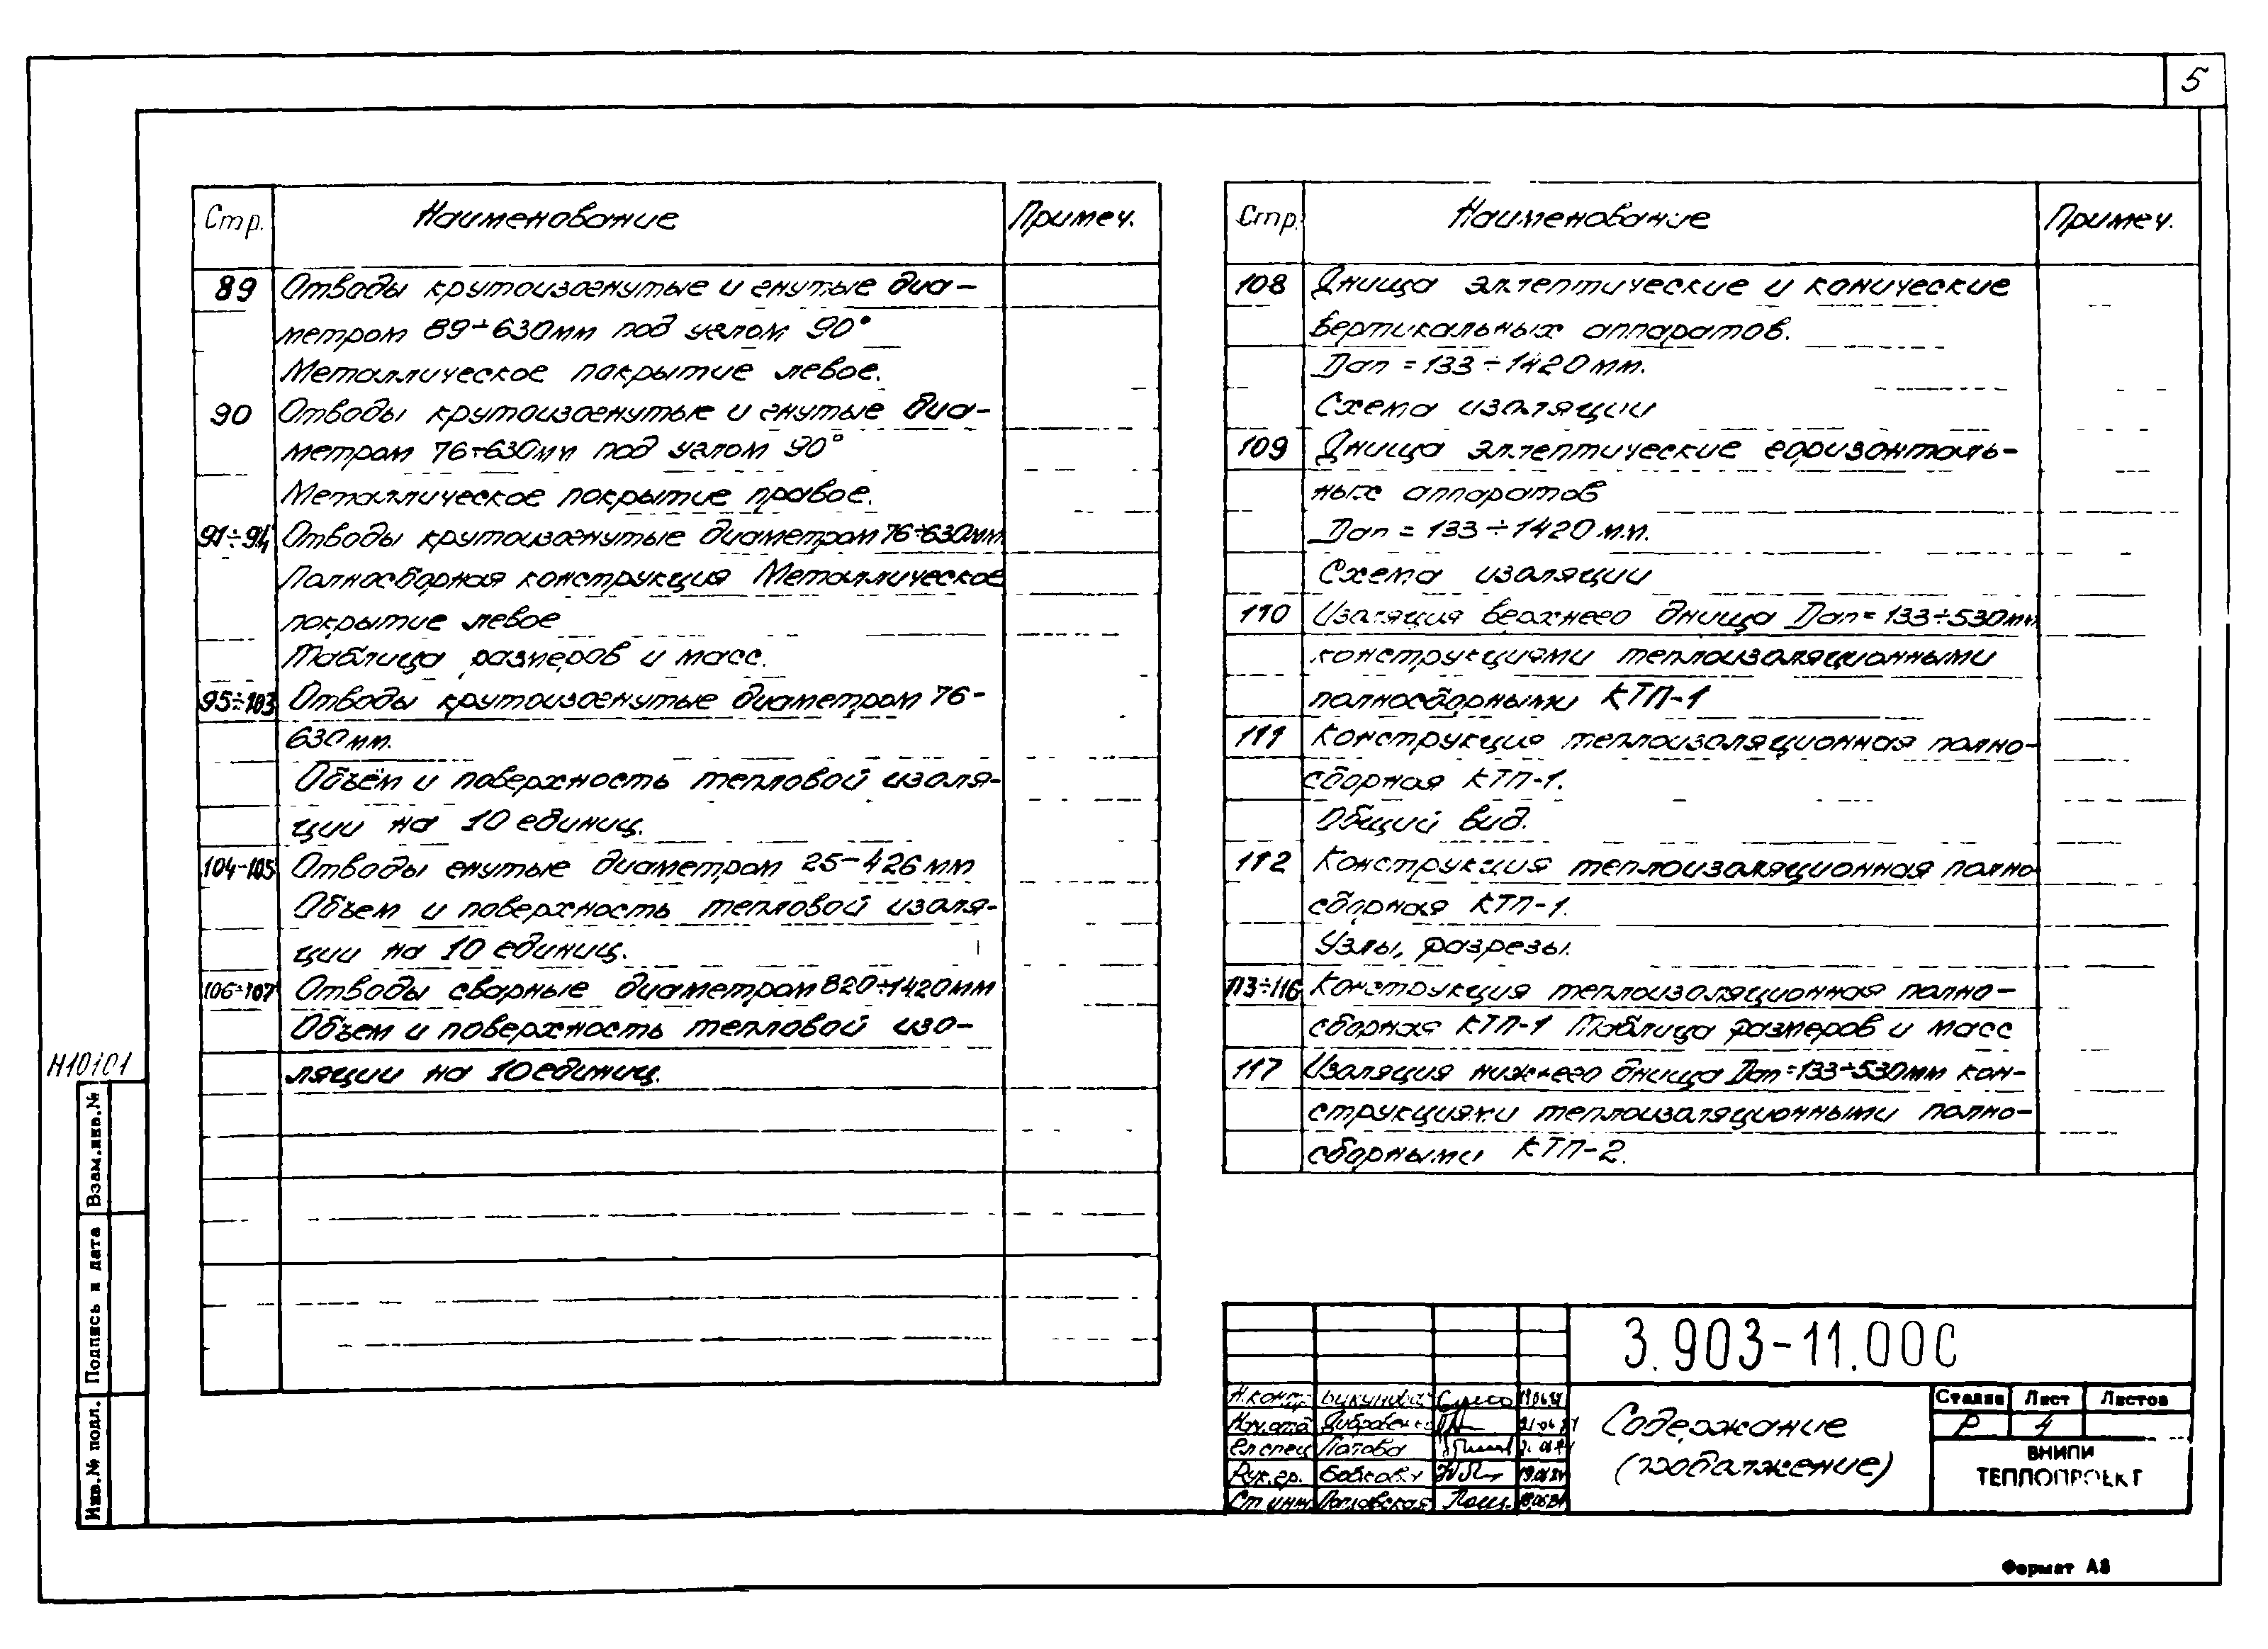 5
Стр. Наименование Примеч.
89 Отводы крутоизогнутые и гнутые диа-
метром 89÷630мм под углом 90°
Металлическое покрытие левое.
90 Отводы крутоизогнутые и гнутые диа-
метром 76÷630мм под углом 90°
Металлическое покрытие правое.
91÷94 Отводы крутоизогнутые диаметром 76÷630мм
Полносборная конструкция Металлическое
покрытие левое
Таблица размеров и масс.
95÷103 Отводы крутоизогнутые диаметром 76-
630мм.
Объём и поверхность тепловой изоля-
ции на 10 единиц.
104-105 Отводы гнутые диаметром 25-426мм
Объем и поверхность тепловой изоля-
ции на 10 единиц.
106÷107 Отводы сварные диаметром 820÷1420мм
Объем и поверхность тепловой изо-
ляции на 10 единиц.
Стр. Наименование Примеч.
108 Днища эллептические и конические
вертикальных аппаратов.
Dап = 133÷1420мм.
Схема изоляции
109 Днища эллептические горизонталь-
ных аппаратов
Dап = 133÷1420мм.
Схема изоляции
110 Изоляция верхнего днища Dап=133÷530мм
конструкциями теплоизоляционными
полносборными КТП-1
111 Конструкция теплоизоляционная полно-
сборная КТП-1.
Общий вид.
112 Конструкция теплоизоляционная полно
сборная КТП-1.
Узлы, разрезы.
113÷116 Конструкция теплоизоляционная полно-
сборная КТП-1 Таблица размеров и масс
117 Изоляция нижнего днища Dап=133÷530мм кон-
струкциями теплоизоляционными полно-
сборными КТП-2.
Н10101
Взам.инв.№
Подпись и дата
Инв.№ подл.
3.903-11.00С
Н.контр.
Нач.отд
Гл спец Потова
Рук.гр.
Ст инж
Содержание
(продолжение)
Стадия Лист Листов
Р 4
ВНИПИ
ТЕПЛОПРОЕКТ
Формат А3